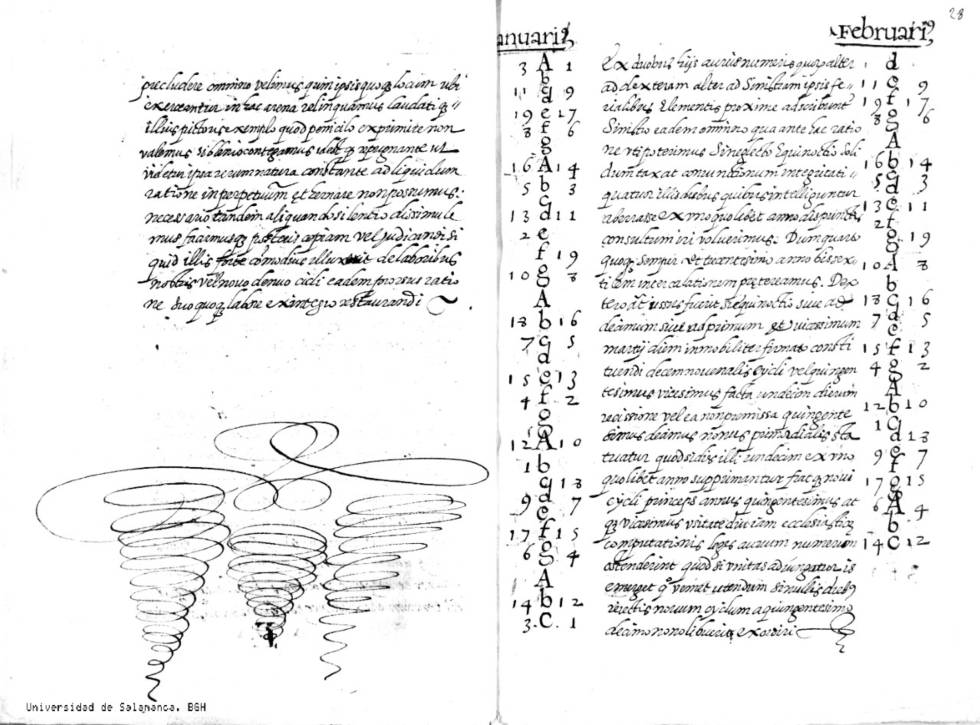 precludere omnino velimus quin ipsis quoq; locum ubi
exerceantur in hac arena relinquamus laudati q;
illius pictoris exemplo quod penicilo exprimere non
valemus
videtur ipsa rerum natura constante ad liquidum
ratione in perpetuum et ternare non possumus:
necessario tandem aliquando silentio dissimule
mus faciamusq; posteris copiam vel judicandi si
quid illis forte comodius illuxerit de laboribus
nostris vel novo denuo cicli eadem prorsus ratio
ne suo quoq; labore ex integro restaurandi
28
anuariꝰ
3 A 1
b
11 c 9
d
19 e 17
8 f 6
g
16 A 14
5 b 3
c
13 d 11
2 e
f 19
10 g 8
A
18 b 16
7 c 5
d
15 e 13
4 f 2
g
12 A 10
1 b
c 18
9 d 7
e
17 f 15
6 g 4
A
14 b 12
3 C 1
Februariꝰ
Ex duobus hijs aureis numeris quorum alter
ad dexteram alter ad Sinistram ipsis fe
rialibus Elementis proxime adscribunt
Sinistro eadem omnino qua ante hac ratio
ne uti poterimus Si neglecto Equinoctio Soli
dum taxat conjunctionum integritati
quatuor illis diebus quibus intelliguntur
aberrasse ex mo nolibet anno dispunctis
consultum iri voluerimus: Dum quarto
quoq; semper et trecentesimo anno bissex
tilem intercalationem pretereamus. Dex
tero at ussus fuerit Si equinoctio sive ad
decimum sive ad primum et vicessimum
martij diem immobiliter firmato consti
tuendi decemnovenalis cycli vel quingen
tesimus vicesimus facta undecim dierum
recissione vel ea non promissa quingente
simus decimus nonus primordialis sta
tuatur quod si dies illi undecim ex mo
quolibet anno supprimantur fiat q; novi
cycli princeps annus quingentesimus at
q; vicesimus usitate dictam ecclesiasticę
computationis leges aureum numerum
ostenderint quod si unitas adiungatur is
emerget q veniet utendum si nullis diebꝰ
reiectis novum cyclum a quingentesimo
decimo nono libuerit exordiri
1 d
e
11 f 9
19 g 17
8 A 6
16 b 14
5 c 3
13 e 11
2 f
g 19
10 A 8
b
18 c 16
7 d 5
e
15 f 13
4 g 2
A
12 b 10
1 c
d 18
9 e 7
f
17 g 15
6 A 4
b
14 c 12
Universidad de Salamanca. BGH